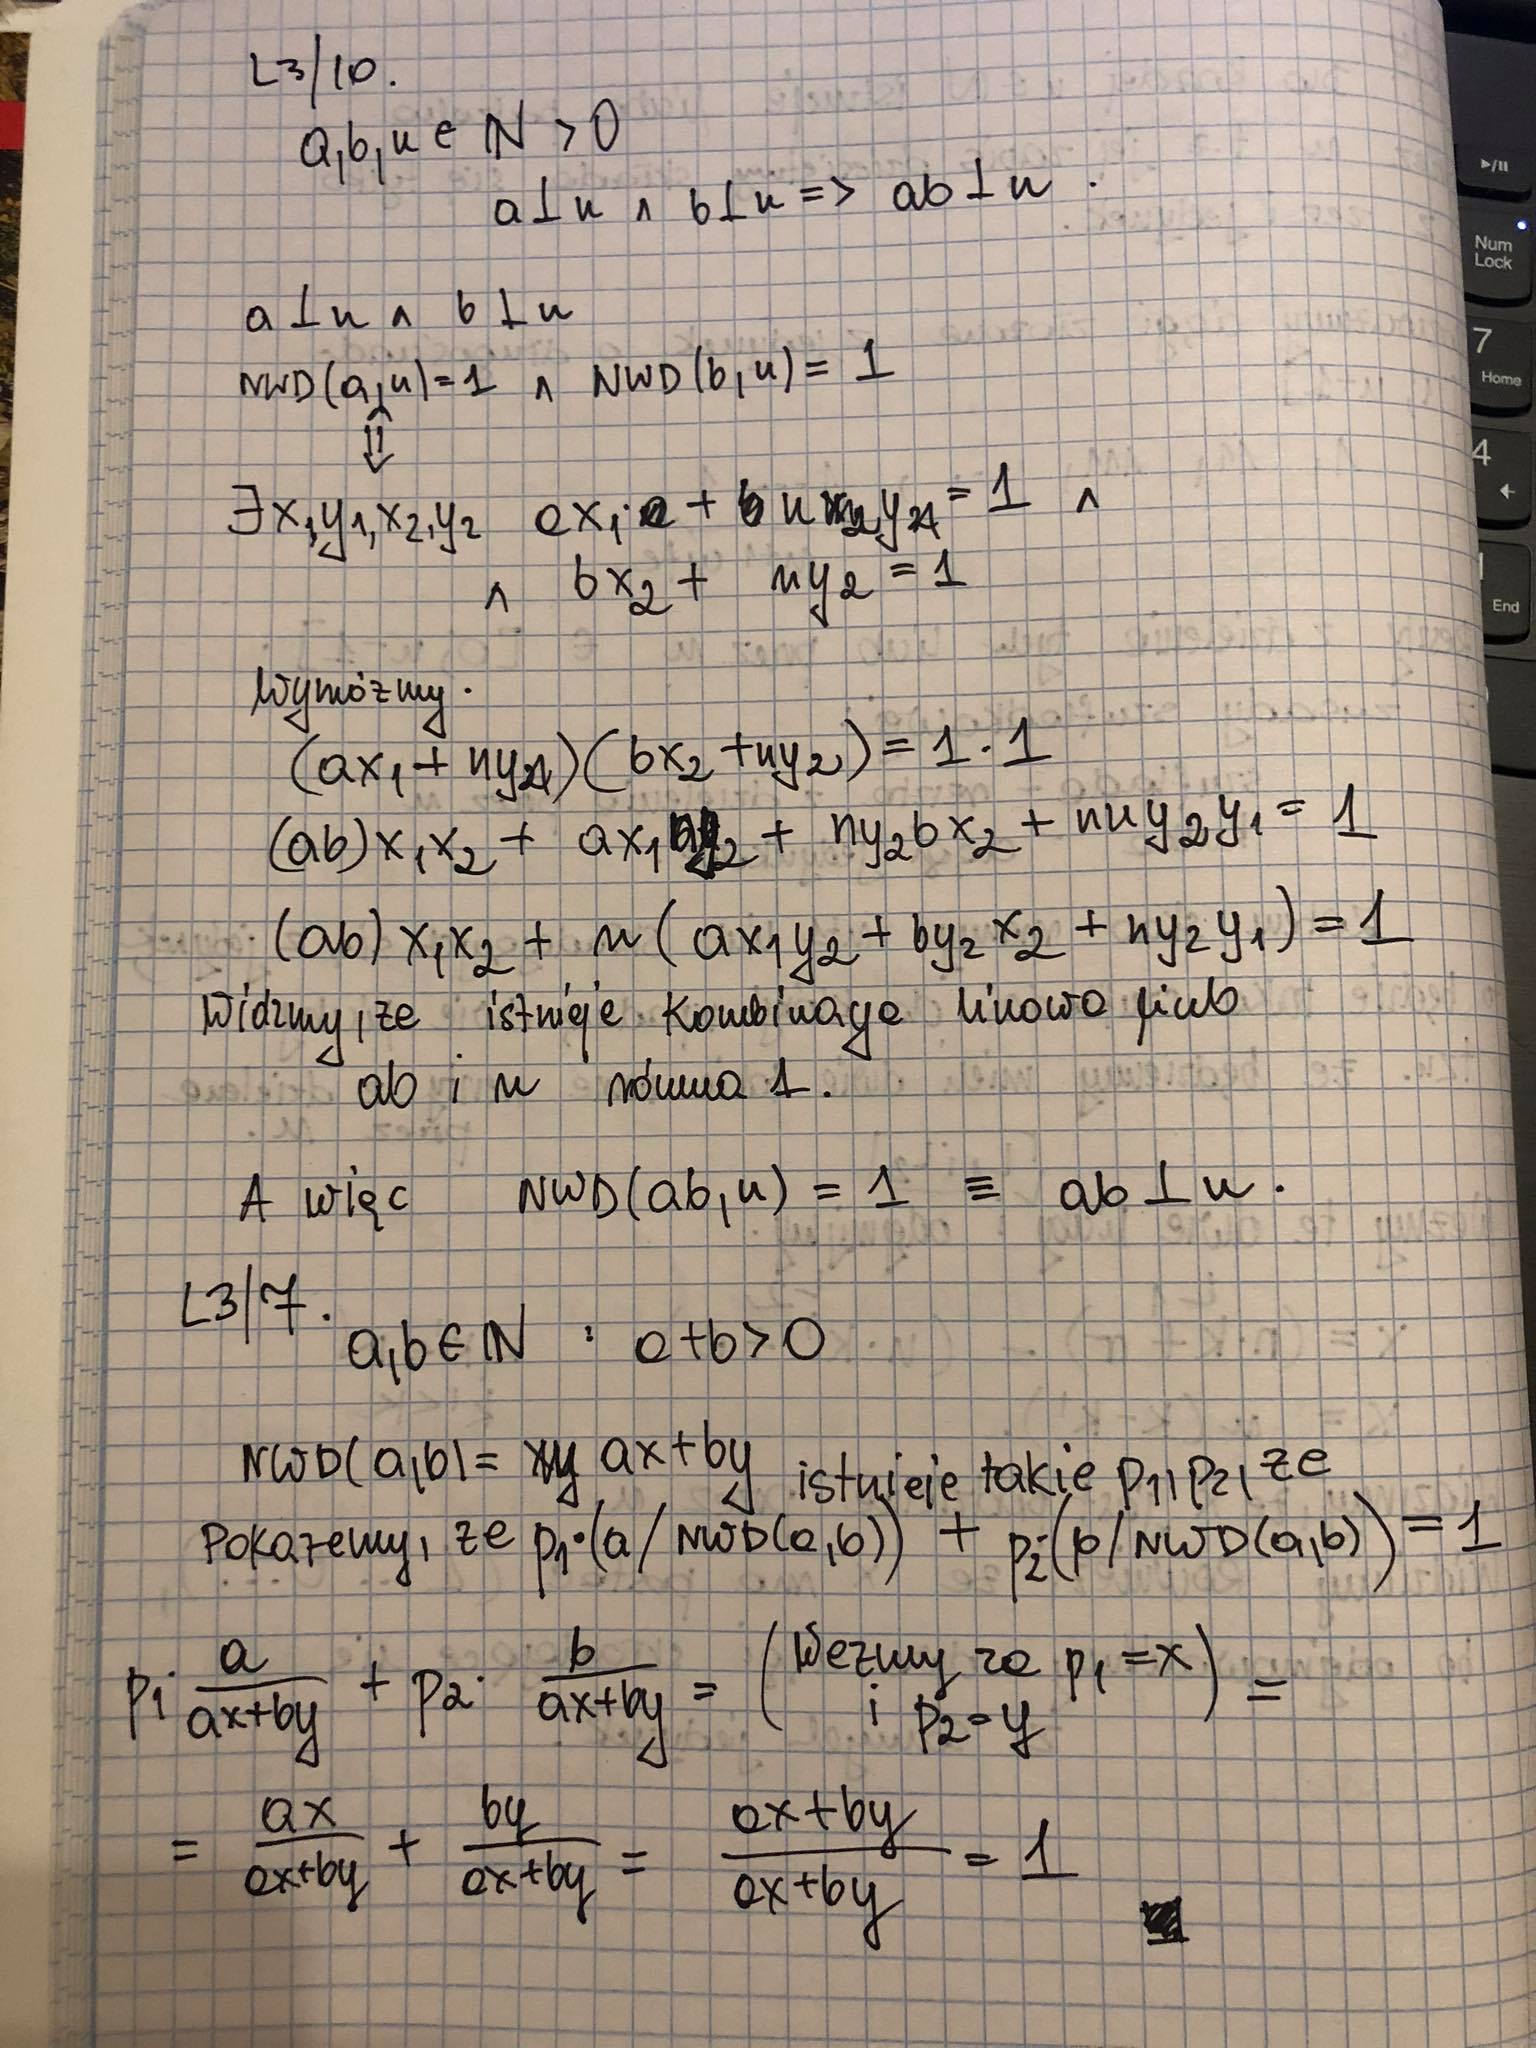 L3/10.
a,b,n ∈ ℕ > 0
a⊥n ∧ b⊥n => ab⊥n.
a⊥n ∧ b⊥n
NWD(a,n)=1 ∧ NWD(b,n)=1
⇕
∃x₁,y₁,x₂,y₂ ax₁ + n y₁ = 1 ∧
∧ bx₂ + ny₂ = 1
Wymóżmy.
(ax₁ + ny₁)(bx₂ + ny₂) = 1·1
(ab)x₁x₂ + ax₁ny₂ + ny₂bx₂ + nny₂y₁ = 1
(ab)x₁x₂ + n(ax₁y₂ + by₂x₂ + ny₂y₁) = 1
Widzmy, ze istnieje kombinacja linowa liczb
ab i n równa 1.
A więc NWD(ab,n) = 1 ≡ ab⊥n.
L3/7.
a,b ∈ ℕ : a+b>0
NWD(a,b) = ax+by istnieje takie p₁, p₂, ze
Pokazemy, ze p₁·(a/NWD(a,b)) + p₂·(b/NWD(a,b)) = 1
p₁· a/(ax+by) + p₂· b/(ax+by) = (Wezmy za p₁=x i p₂=y) =
= ax/(ax+by) + by/(ax+by) = (ax+by)/(ax+by) = 1
▶/II
Num
Lock
7
Home
4
←
End